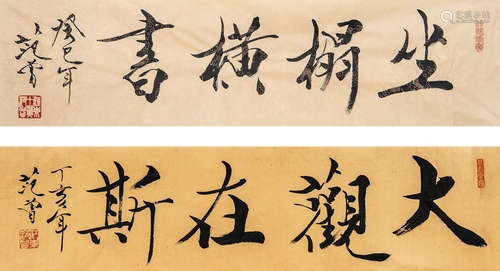 坐榻橫書
癸巳年
范曾
大觀在斯
丁亥年
范曾